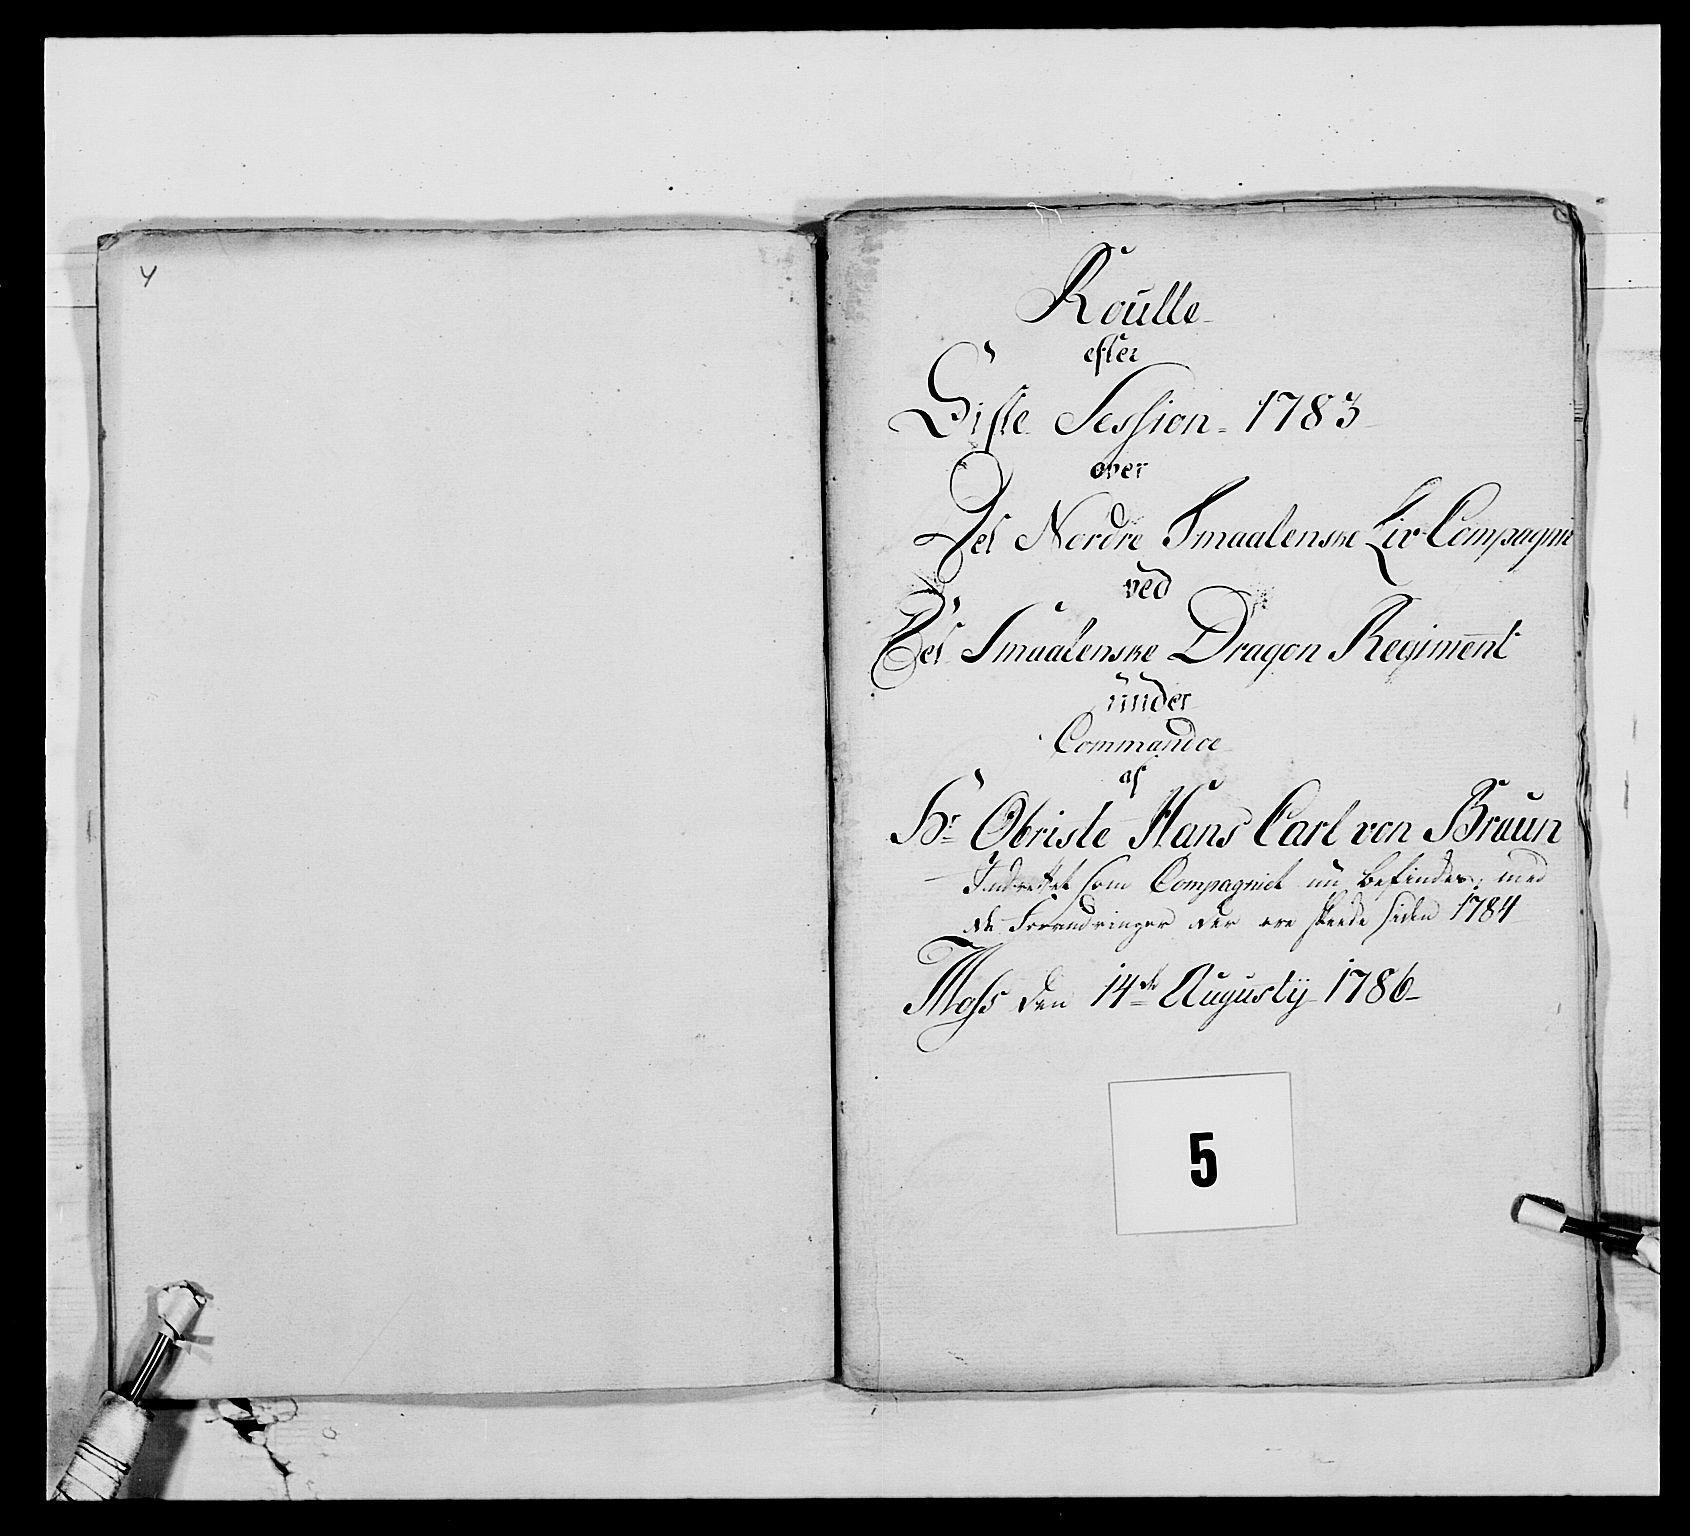 4
Roulle
efter
Siste Session 1783
over
Det Nordre Smaalenske Liv Compagnie
ved
Det Smaalenske Dragon Regiment
under
Commandoe
af
Hr Obriste Hans Carl von Bruun
Indrettet som Compagniet nu befindes, med
de Forandringer der ere skeede siden 1784
Moss den 14de Augustij 1786
5